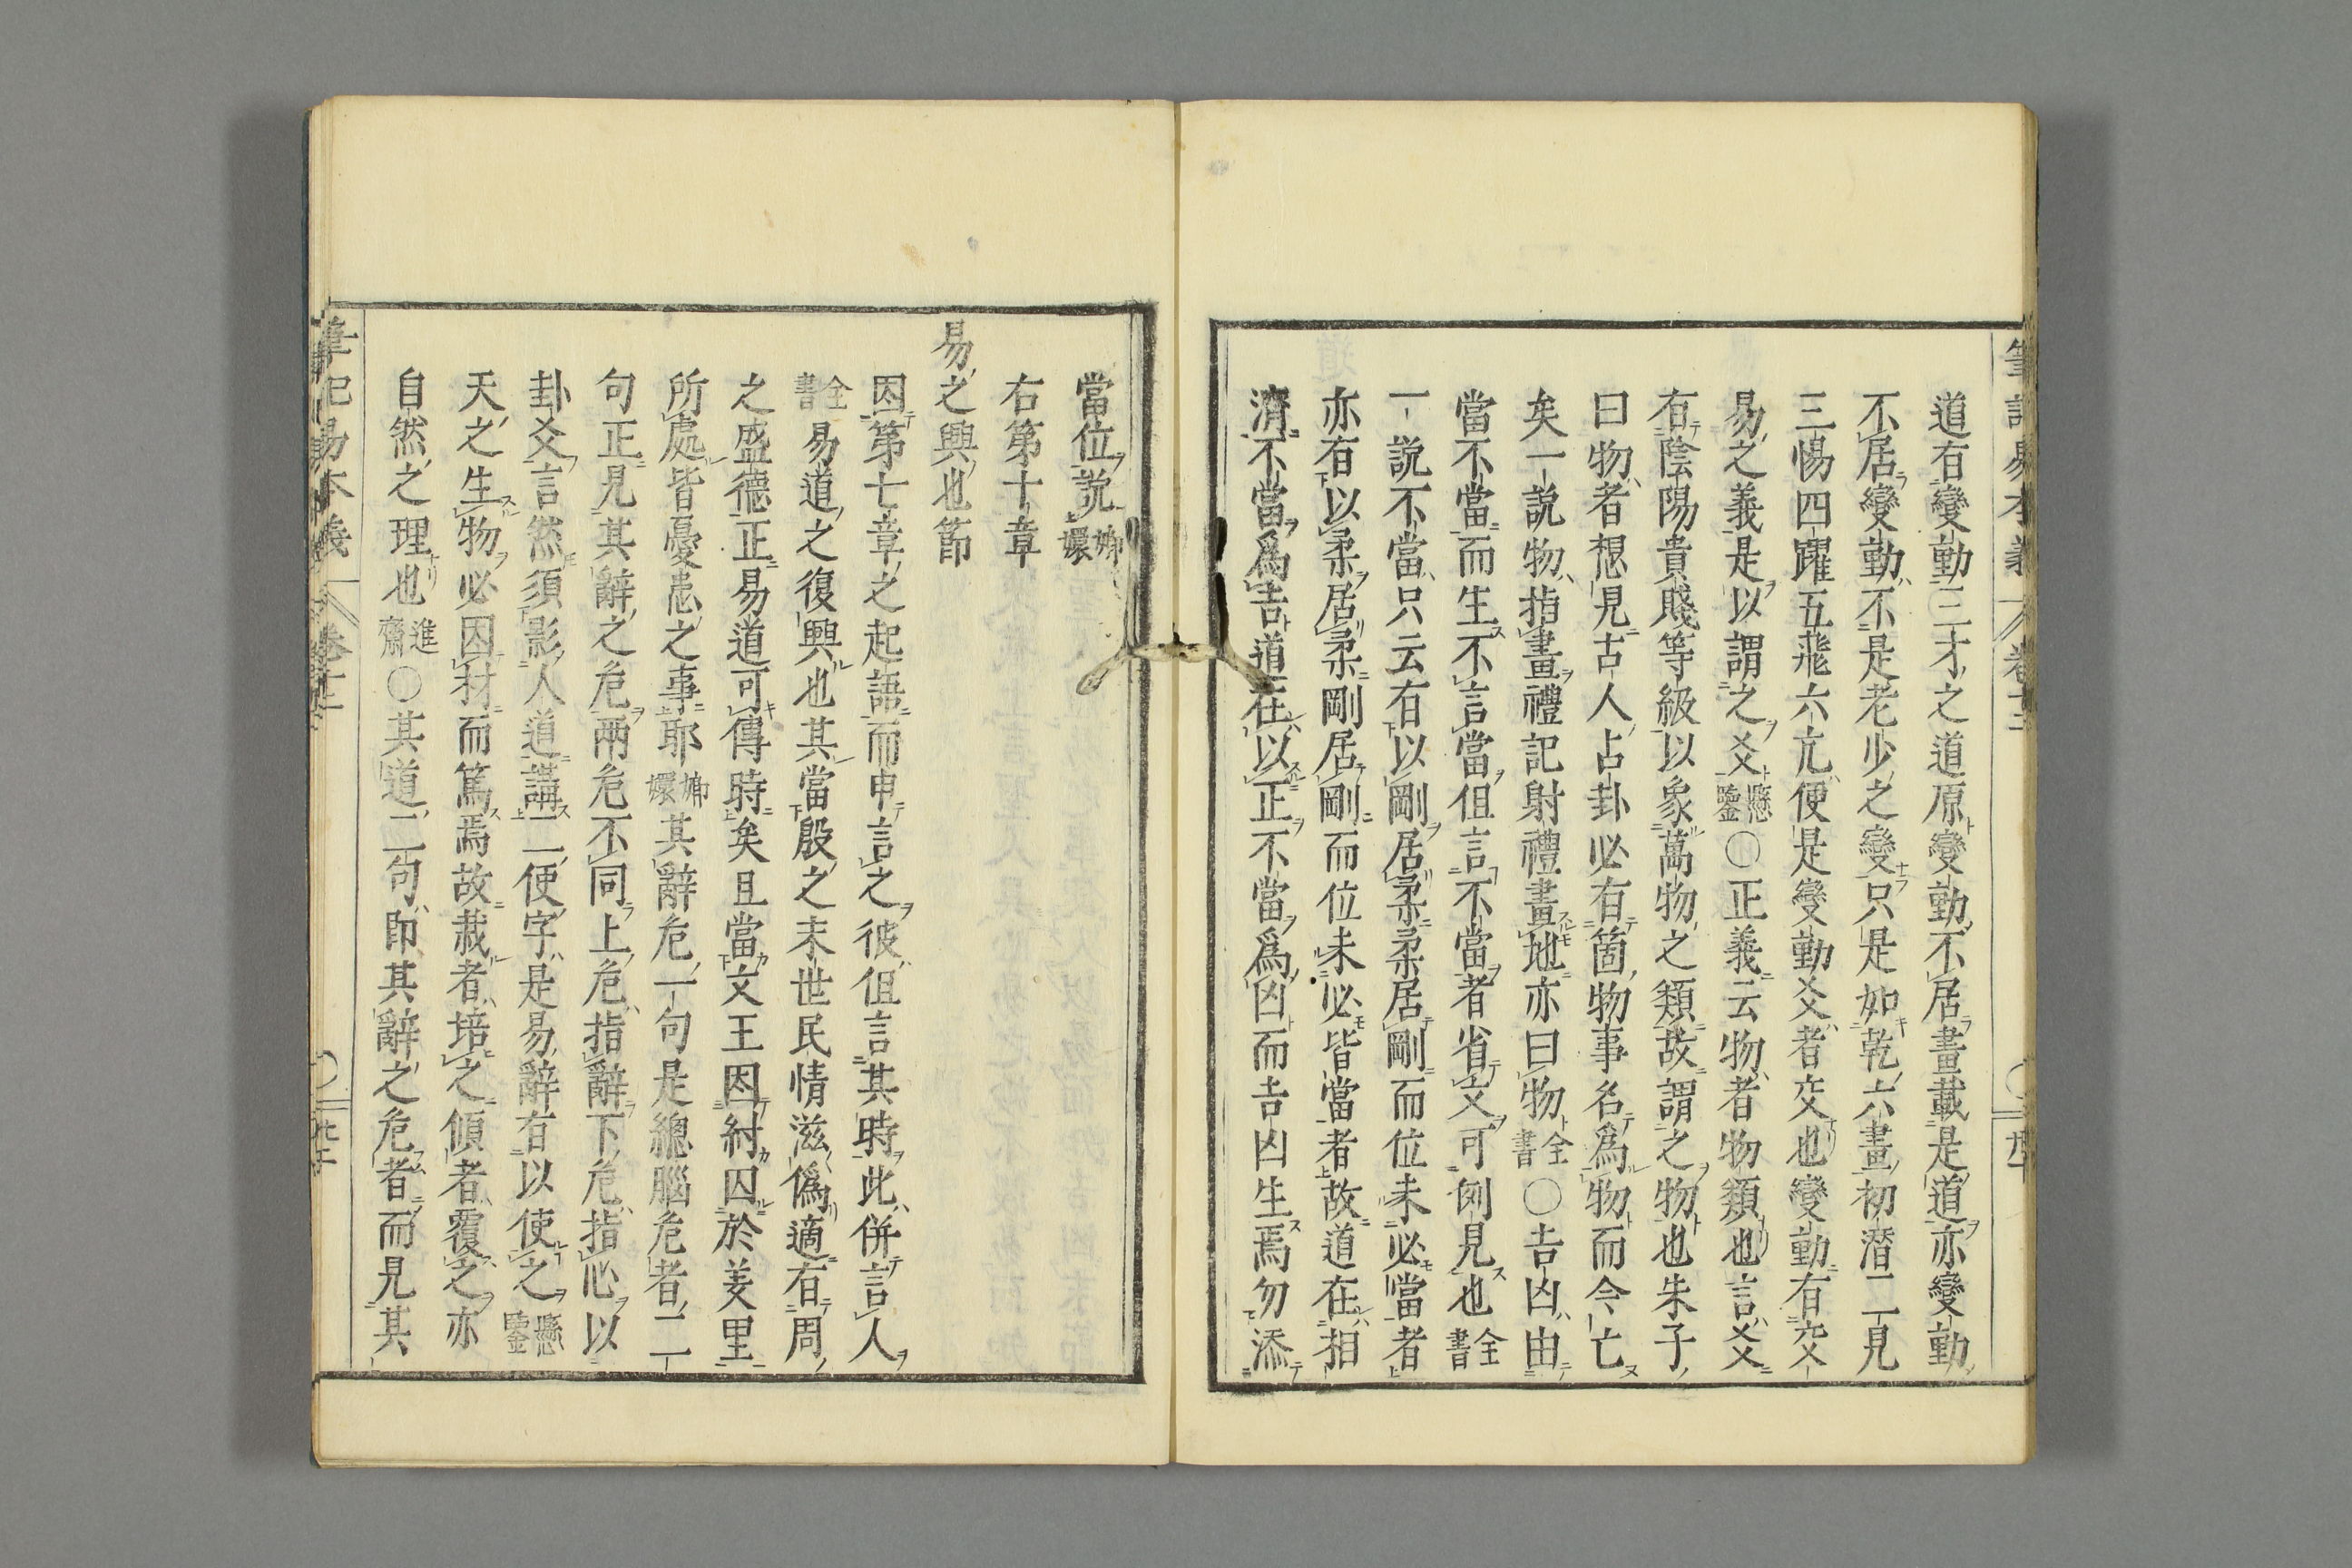 道有變動三才之道原變動不居畫載是道亦變動
不居變動不是老少之變只是如乾六畫初潛二見
三惕四躍五飛六亢便是變動爻者交也變動有交
易之義是以謂之爻懸鑒〇正義云物者物類也言爻
有陰陽貴賤等級以象萬物之類故謂之物也朱子
曰物者想見古人占卦必有箇物事名爲物而今亡
矣一說物指畫禮記射禮畫地亦曰物全書〇吉凶由
當不當而生不言當但言不當者省文可例見也全書
一說不當只云有以剛居柔柔居剛而位未必當者
亦有以柔居柔剛居剛而位未必皆當者故道在相
濟不當爲吉道在以正不當爲凶而吉凶生焉勿添
當位說嫏嬛
右第十章
易之興也節
因第七章之起語而申言之彼但言其時此併言人
全書易道之復興也其當殷之末世民情滋僞適有周
之盛德正易道可傳時矣且當文王因紂囚於羑里
所處皆憂患之事耶嫏嬛其辭危一句是總腦危者二
句正見其辭之危兩危不同上危指辭下危指心以
卦爻言然須影人道講二便字是易辭有以使之懸鑒
天之生物必因材而篤焉故栽者培之傾者覆之亦
自然之理也進齋〇其道二句即其辭之危者而見其
筆記易本義